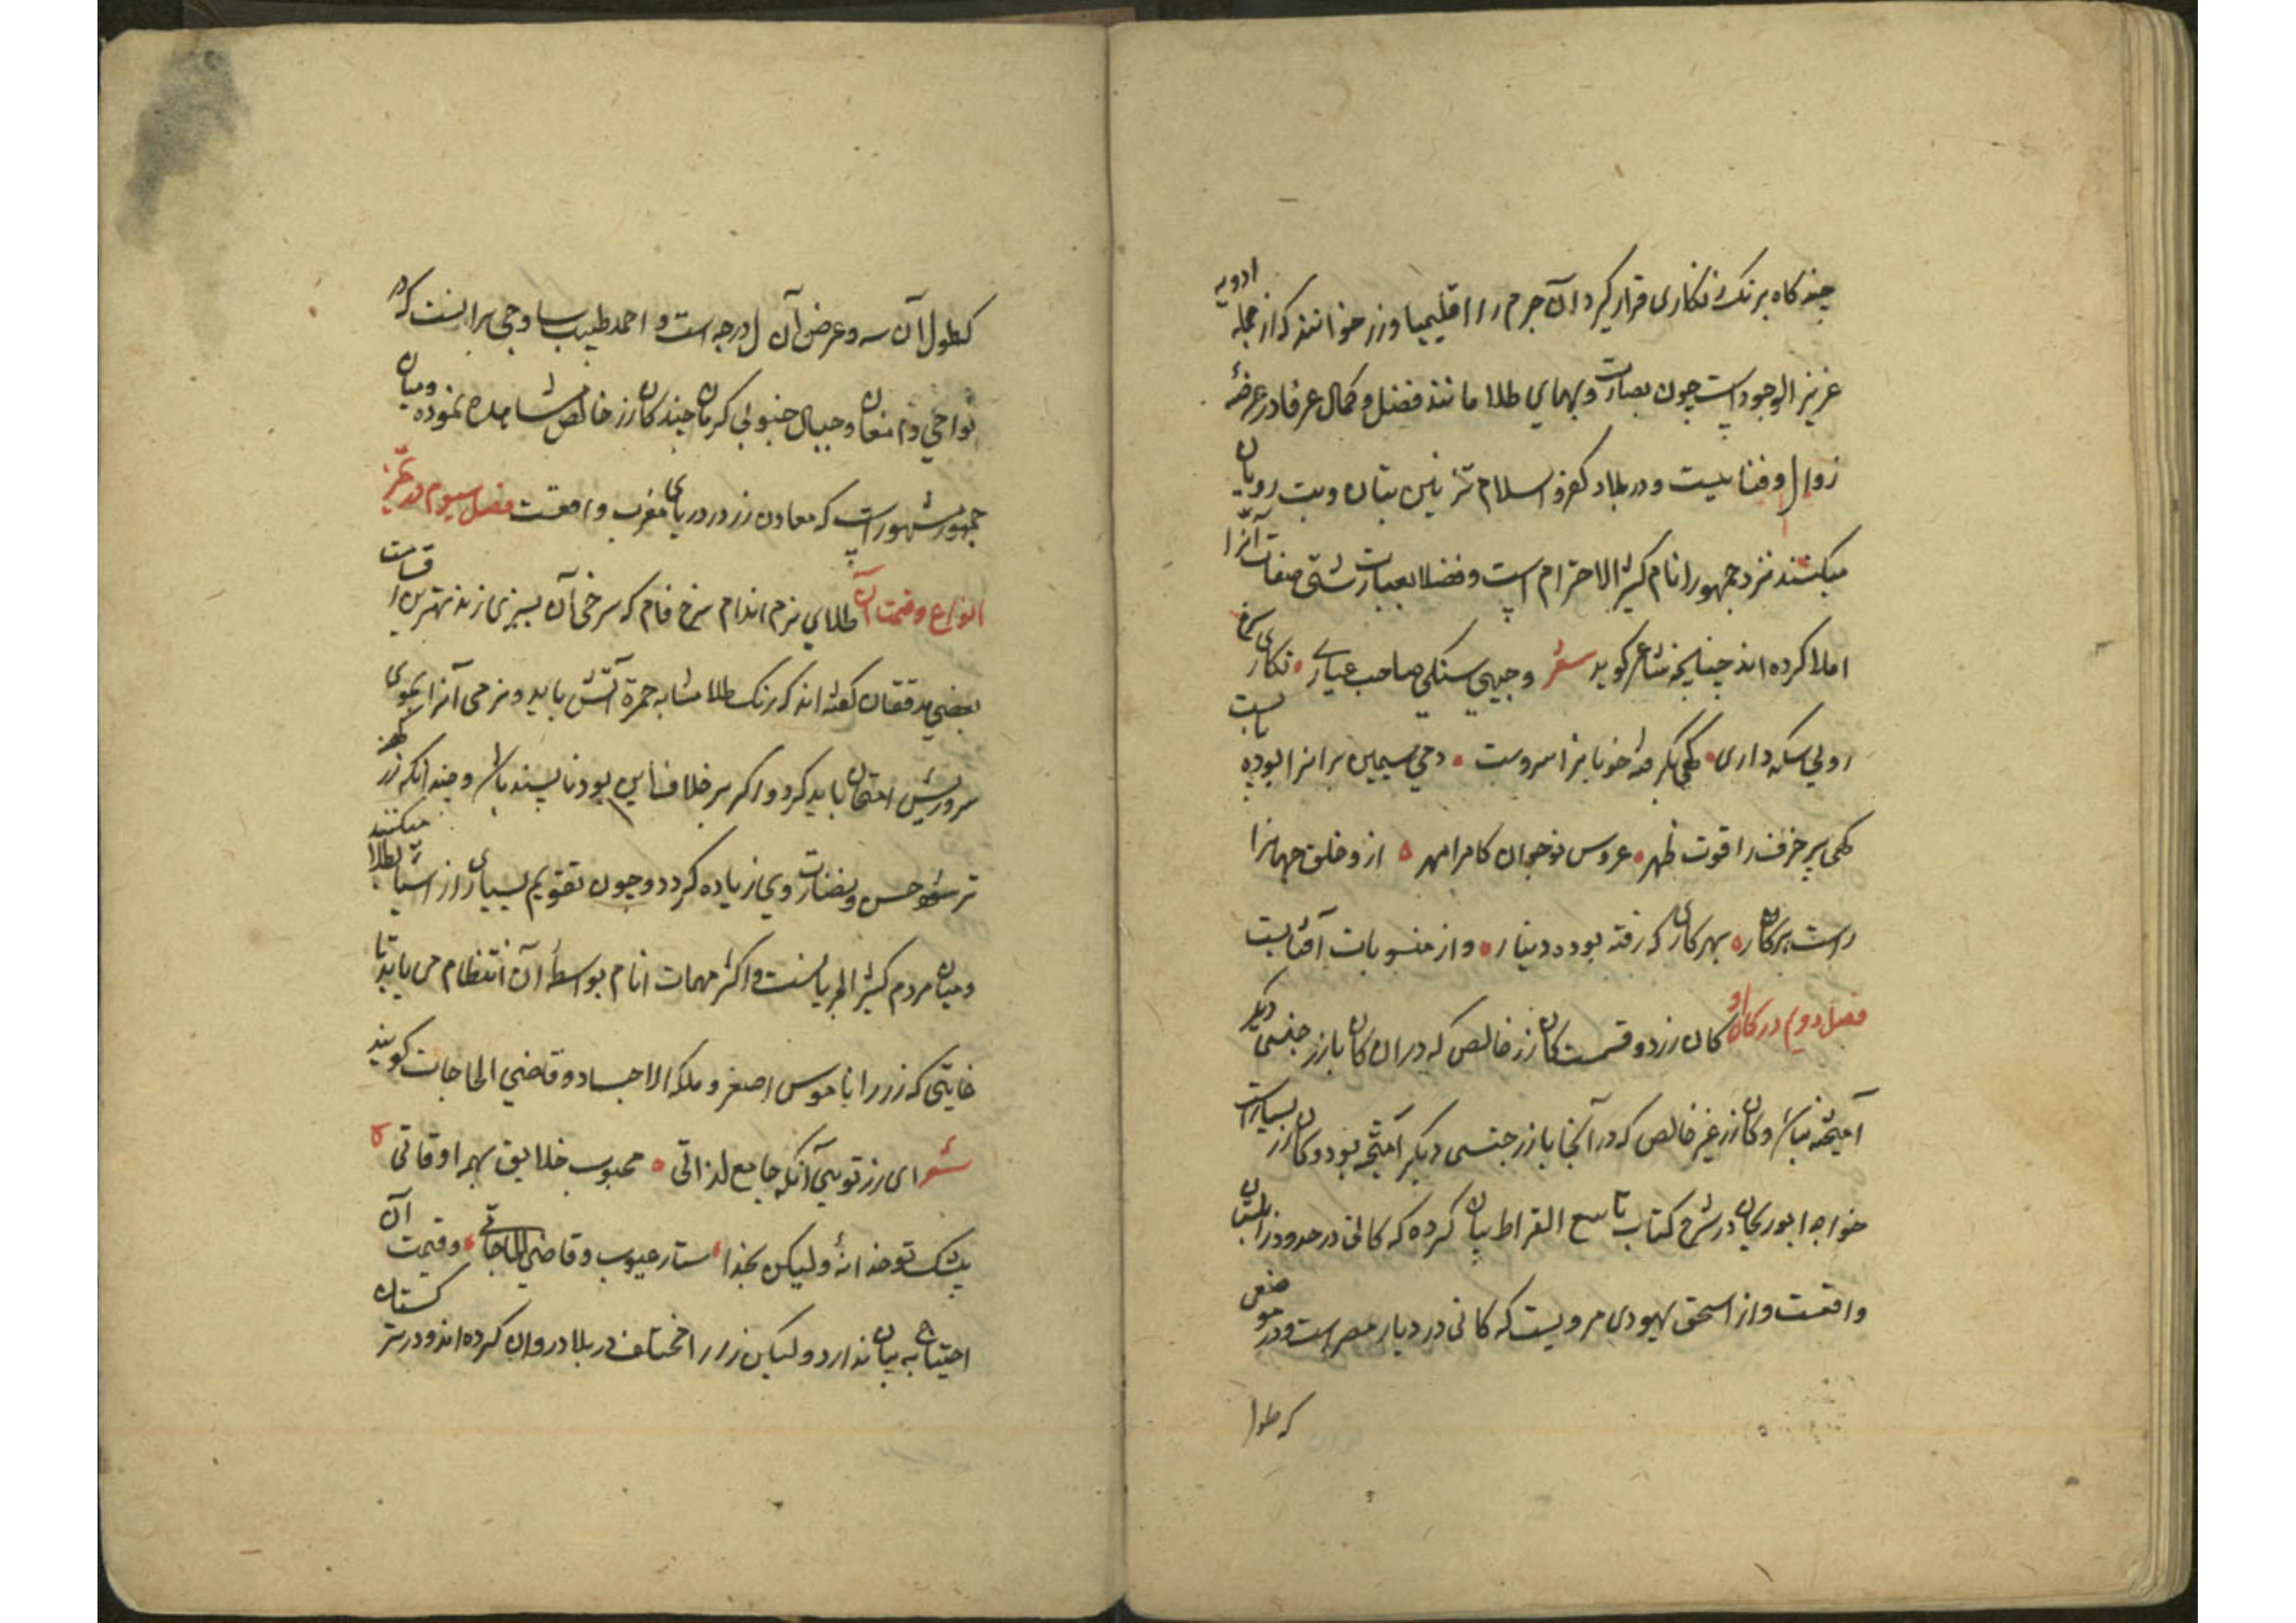 چند کاه برنک زنکاری قرار کیرد آن جرم را اقلیمیا و زر خوانند که از جمله ادویه
عزیز الوجود است چون بصارت و بهای طلا مانند فضل و کمال عرفا در عرضهٔ
زوال و فنا نیست و در بلاد کفر و اسلام تزیین بتان و بت رویان
میکنند نزد جمهور انام کثیر الاحترام است و فضلا بعبارت شتی صفات آنرا
املا کرده اند چنانچه شاعر کوید شعر وجیهی سنکی صاحب عیاری نکاری سرخ
رویی سکه داری کهی بکرفته خوبانرا سر و دست دمی سیمین برانرا بوده پا بست
کهی پیر خرف را قوت ظهر عروس نوجوان کامرا مهر ازو خلق جهانرا
راست پرکار بهر کاری که رفته بوده دینار و از منسوبات آفتابست
فصل دوم در کان او کان زر دو قسمست کان زر خالص که در ان کان با زر جنسی دیکر
آمیخته نباشد و کان زر غیر خالص که در آنجا با زر جنسی دیکر آمیخته بود و کان زر بسیار است
خواجه ابو ریحان در شرح کتاب تاسع القراط بیان کرده که کانی در حدود زابلستان
واقعست و از اسحق یهودی مرویست که کانی در دیار مصر است و در موضعی
که طول
کطول آن سه و عرض آن ل درجه است و احمد طبیب ساوجی برانست که در
نواحی دامغان و جبال جنوبی کرمان چند کان زر خالص مشاهده نموده و میان
جمهور مشهور است که معادن زر در دریای مغرب واقعست فصل سیوم در
انواع و قیمت آن طلای نرم اندام سرخ فام که سرخی آن بسبزی زند بهترین اقسامست
بعضی مدققان کفته اند که رنک طلا مشابه حمرة آتش باید و نرمی آنرا بموی
سر و ریش امتحان باید کرد و اکر بر خلاف این بود ناپسند باشد و چندانکه زر کهنه
تر شود حسن و بضارت وی زیاده کردد و چون تقویم بسیاری از اشیا بطلا میکنند
و میان مردم کثیر الجریانست و اکثر مهمات انام بواسطهٔ آن انتظام می یابد تا
غایتی که زر را ناموس اصغر و ملکه الاجساد و قاضی الحاجات کویند
شعر ای زر تویی آنکه جامع لذاتی محبوب خلایق بهمه اوقاتی
بیشک تو خدا نهٔ و لیکن بخدا ستار عیوب و قاضی الحاجاتی و قیمت آن
احتیاج به بیان ندارد و لیکن زر را مختلف در بلاد روان کرده اند و در